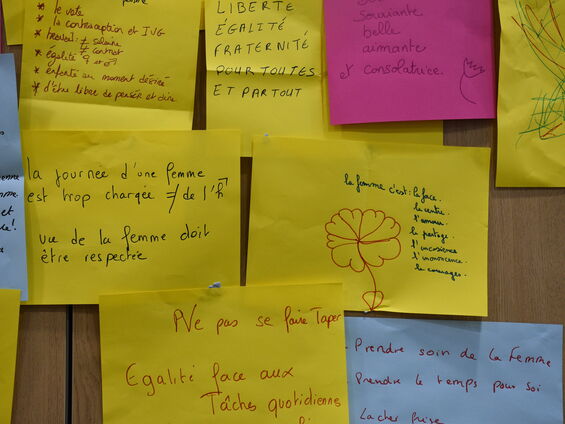 femme
* le vote
* la contraception et IVG
* travail: ≠ salaire
≠ contrat
* égalité ♀ et ♂
* enfanté au moment désiré
* d'être libre de penser et dire
LIBERTÉ
ÉGALITÉ
FRATERNITÉ
POUR TOUTES
ET PARTOUT
souriante
belle
aimante
et consolatrice.
la journée d'une femme
est trop chargée ≠ de l'h
vie de la femme doit
être respectée
la femme c'est: la face.
le centre.
l'amour.
le partage.
l'innoncence.
le courages.
Ne pas se faire Taper
Egalité face aux
Tâches quotidiennes
. Prendre soin de la Femme
. Prendre le temps pour soi
. Lacher prise